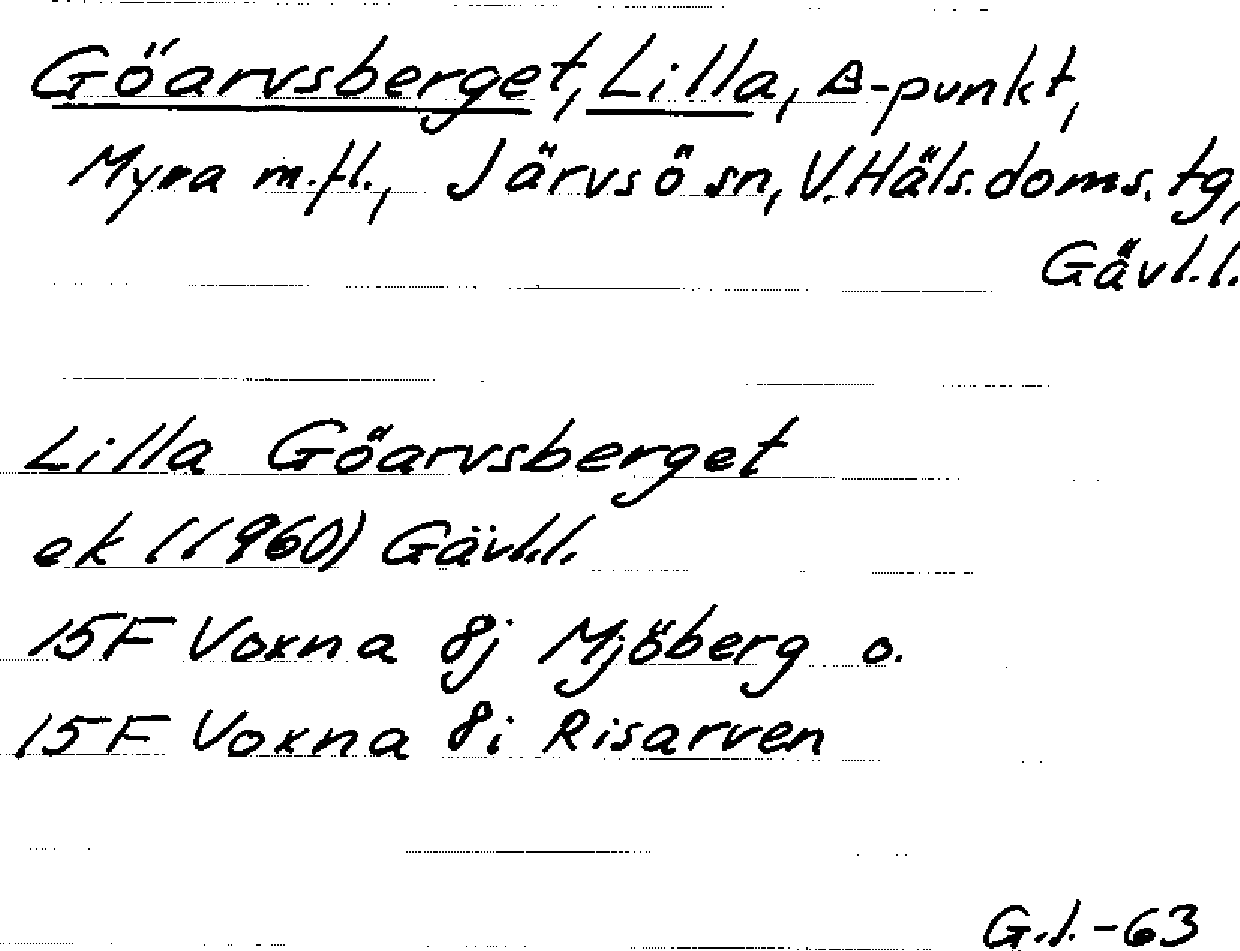 Göarvsberget, Lilla, Δ-punkt,
Myra m.fl., Järvsö sn, V. Häls. doms. tg,
Gävl.l.
Lilla Göarvsberget
ek (1960) Gävl.l.
15F Voxna 8j Mjöberg o.
15F Voxna 8i Risarven
G.l.-63